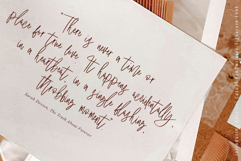 "There is never a time or
place for true love. It happens accidentally,
in a heartbeat, in a single flashing,
throbbing moment."
Sarah Dessen, The Truth About Forever